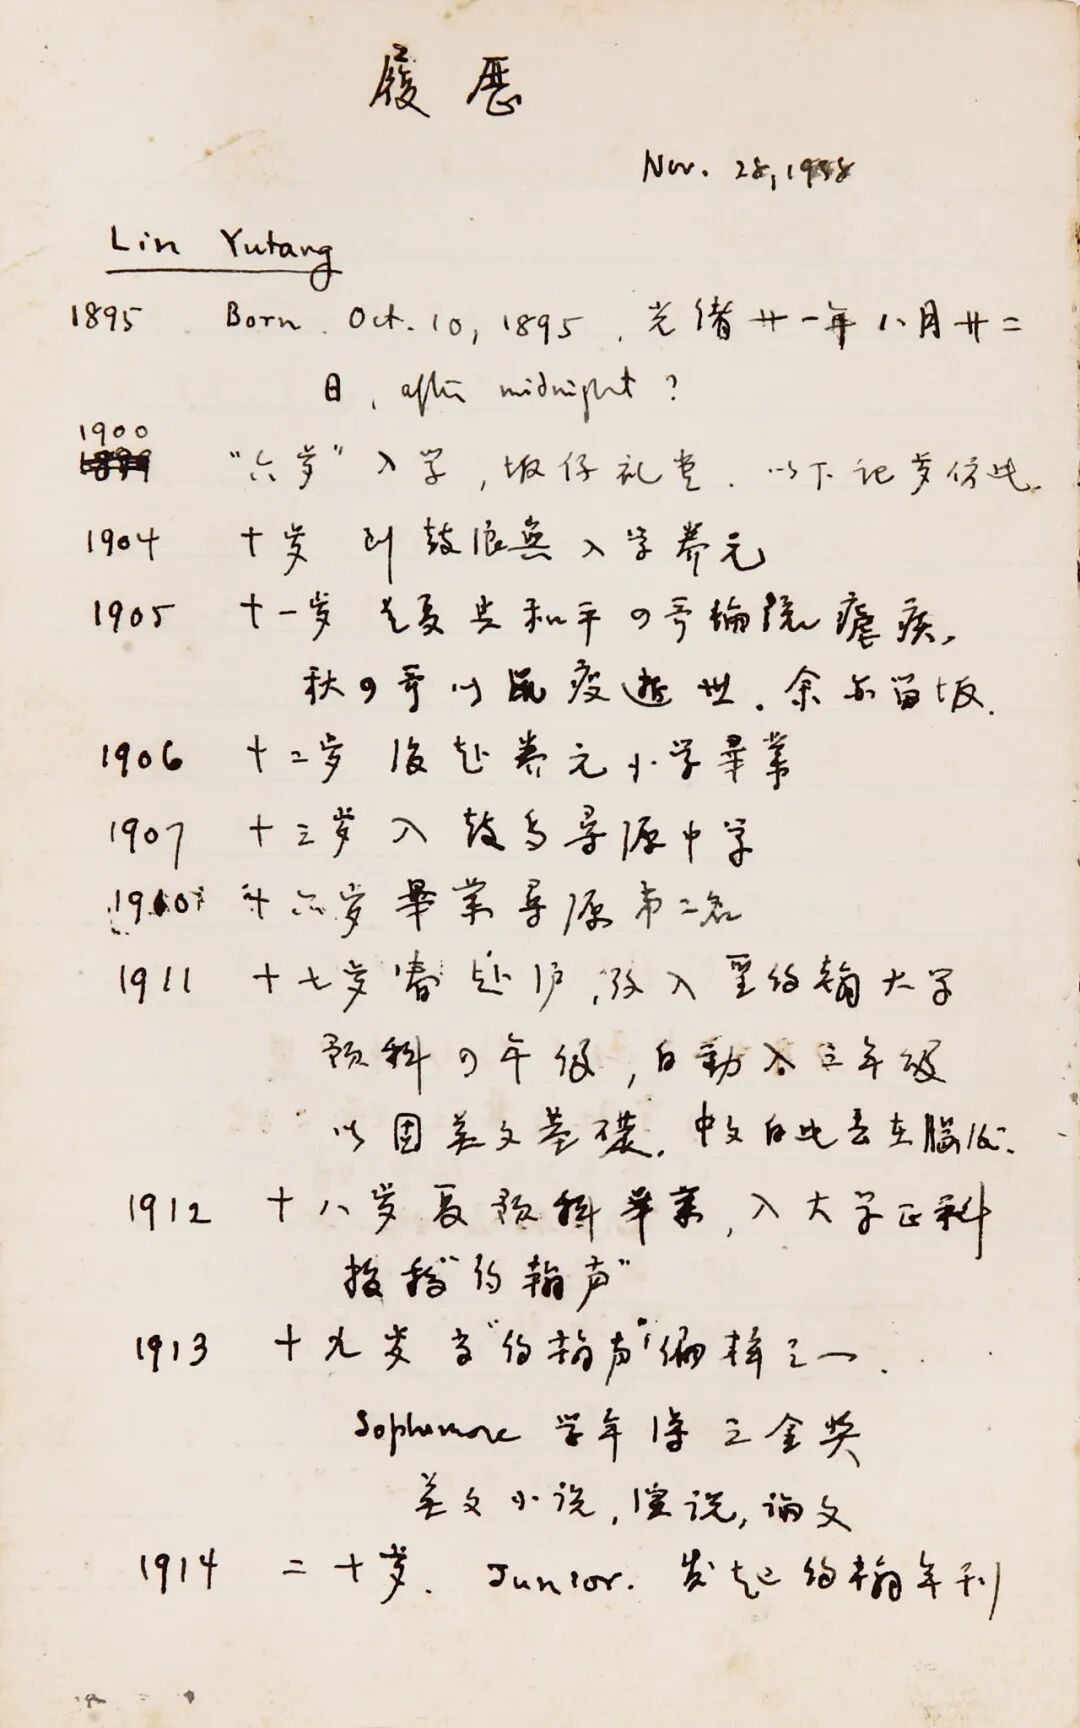 履历
Nov. 28, 19
Lin Yutang
1895 Born. Oct. 10, 1895, 光绪廿一年八月廿二
日, after midnight?
1900
1899 "六岁"入学, 坂仔礼堂. 以下记岁仿此.
1904 十岁 到鼓浪屿入学养元
1905 十一岁 夏 和平 哥 瘧疾,
秋 哥以鼠疫逝世. 余亦留坂.
1906 十二岁 復赴养元小学畢業
1907 十三岁 入鼓島寻源中学
1910 十六岁 畢業寻源第二名
1911 十七岁春赴沪, 入聖约翰大学
预科 年级, 自動入三年级
以固英文基礎. 中文自此丢在腦后.
1912 十八岁夏预科畢業, 入大学正科
投稿"约翰声"
1913 十九岁 "约翰声"编辑之一.
Sophomore 学年得三金奖
英文小说, 演说, 论文
1914 二十岁. Junior. 发起约翰年刊